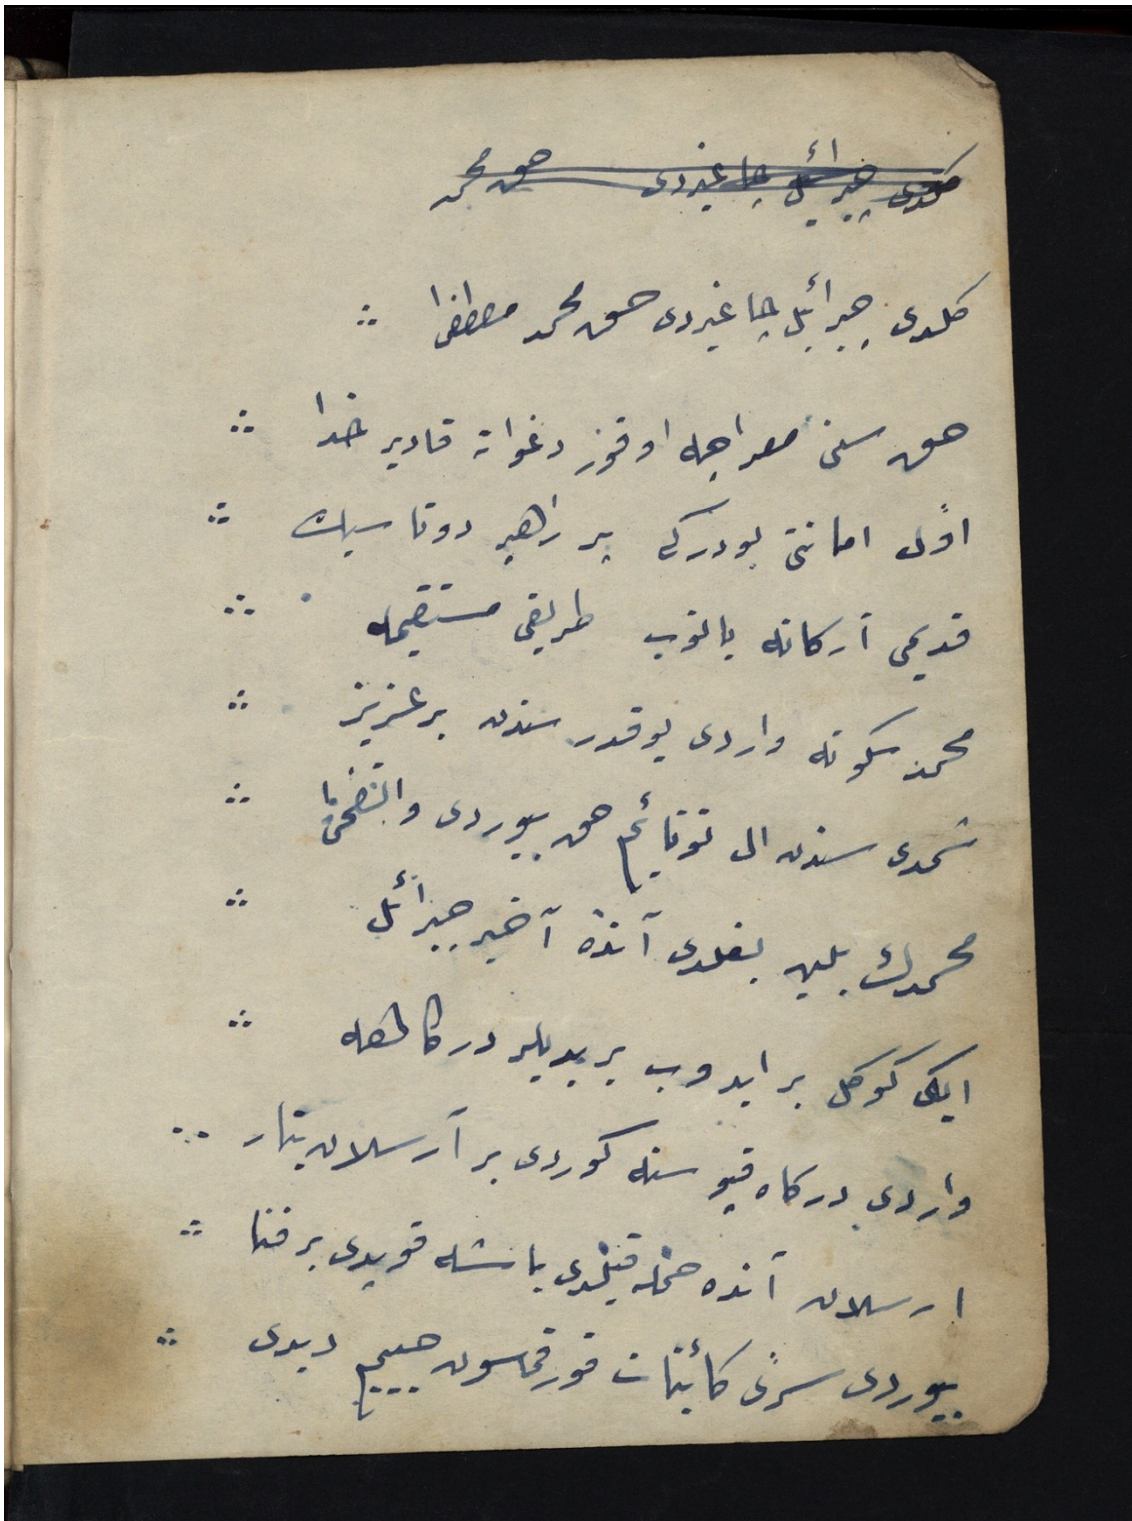 كلدى جبرائيل چاغيردى حق محمد
كلدى جبرائيل چاغيردى حق محمد مصطفا
حق سنى معراجه اوقور دعواته قادير خدا
اوّل امانتى بودركى پير رهبر دوتاسك
قديمى اركانه ياتوب طريقى مستقيمه
محمد سكوته واردى يوقدر سندن بر عزيز
شمدى سندن ال توتايم حق بيوردى والضحا
محمدك بلين بغلدى آنده آخير جبرائيل
ايكى كوكل بر ايدوب يريديلر دركاهه
واردى دركاه قپوسنه كوردى بر آرسلان يتار
ارسلان آنده حمله قيلدى باشه قويدى بر فنا
بيوردى سرّى كائنات قورقماسون حبيبم ديدى